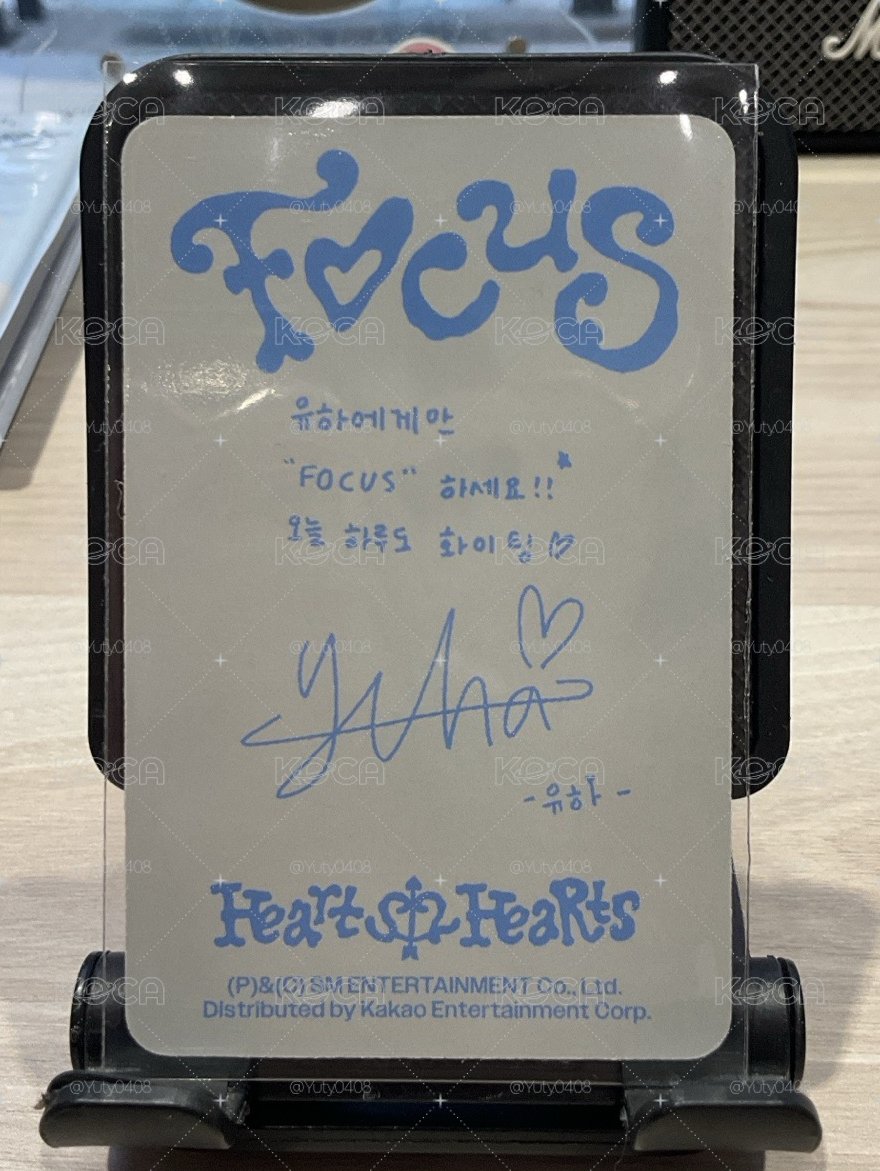 FOCUS
유하에게만
"FOCUS" 하세요!!
오늘 하루도 화이팅
yuha
-유하-
Hearts2Hearts
(P)&(C) SM ENTERTAINMENT Co., Ltd.
Distributed by Kakao Entertainment Corp.
KOCA
@Yuty0408